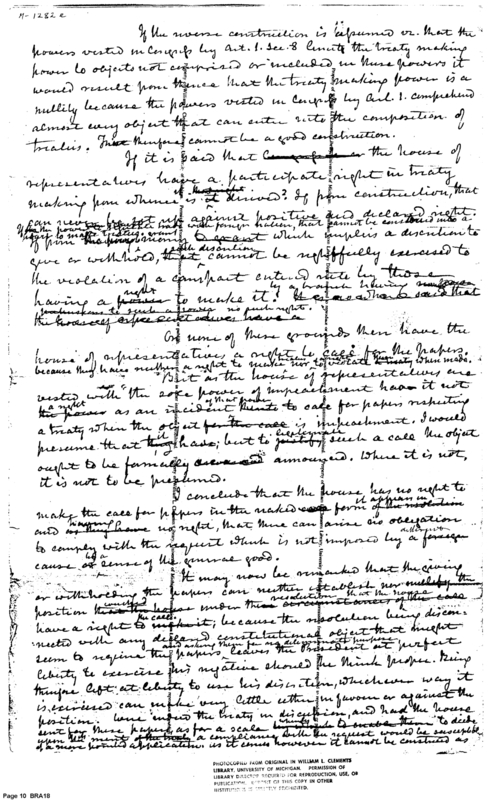 M-1282 e
If the reverse construction is assumed viz. that the
powers vested in Congress by Art. 1. Sec. 8 limits the treaty making
power to objects not comprised or included in those powers it
would result from thence that the treaty making power is a
nullity because the powers vested in Congress by Art. 1. comprehend
almost every object that can enter into the composition of
treaties. That therefore cannot be a good construction.
If it is said that the house of
representatives have a participate right in treaty
making from whence is it derived? If from construction, that
can never be set up against positive and declared right.
If from the power to regulate trade with foreign nations, that cannot be construed into a
power to make treaties
If from which implies a discretion to
give or withhold, that discretion cannot be rightfully exercised to
the violation of a compact entered into by those
having a right to make it; by a branch having
no such right.
On none of these grounds then have the
house of representatives a right to call for the papers
because they have neither a right to make nor to violate when made.
But as the house of representatives are
vested with "the sole power of impeachment" have it not
a right as an incident to that power to call for papers respecting
a treaty when the object is impeachment. I would
presume that they have; but to such a call the object
ought to be formally announced. Where it is not,
it is not to be presumed.
I conclude that the house has no right to
make the call for papers in the naked form it appears in
and having no right, that there can arise no obligation
to comply with the request which is not imposed by a different
cause or by a sense of the general good.
It may now be remarked that the giving
or withholding the papers can neither establish nor
position under the that the house
have a right to the call; because the resolution being discon-
nected with any declared constitutional object that might
seem to require the papers leaves the President at perfect
liberty to exercise his negative should he think proper. Being
therefore left at liberty to use his discretion, whichever way it
is exercised can make very little either in favour or against the
position. Were indeed the treaty in discussion, and had the house
sent for these papers as for a scale to decide
upon a compliance with the request would be susceptible
of a more pointed application as it comes however it cannot be construed as
PHOTOCOPIED FROM ORIGINAL IN WILLIAM L. CLEMENTS
LIBRARY, UNIVERSITY OF MICHIGAN. PERMISSION OF
LIBRARY DIRECTOR REQUIRED FOR REPRODUCTION, USE, OR
PUBLICATION. DEPOSIT OF THIS COPY IN OTHER
INSTITUTIONS IS STRICTLY PROHIBITED.
Page 10 BRA18